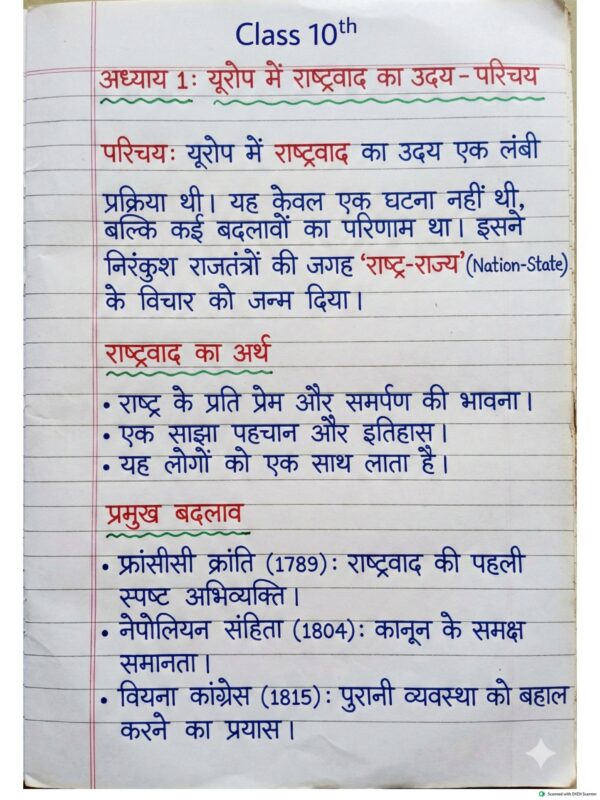 Class 10th
अध्याय 1: यूरोप में राष्ट्रवाद का उदय - परिचय
परिचय: यूरोप में राष्ट्रवाद का उदय एक लंबी
प्रक्रिया थी। यह केवल एक घटना नहीं थी,
बल्कि कई बदलावों का परिणाम था। इसने
निरंकुश राजतंत्रों की जगह ‘राष्ट्र-राज्य’ (Nation-State)
के विचार को जन्म दिया।
राष्ट्रवाद का अर्थ
• राष्ट्र के प्रति प्रेम और समर्पण की भावना।
• एक साझा पहचान और इतिहास।
• यह लोगों को एक साथ लाता है।
प्रमुख बदलाव
• फ्रांसीसी क्रांति (1789): राष्ट्रवाद की पहली
स्पष्ट अभिव्यक्ति।
• नेपोलियन संहिता (1804): कानून के समक्ष
समानता।
• वियना कांग्रेस (1815): पुरानी व्यवस्था को बहाल
करने का प्रयास।
Scanned with OKEN Scanner